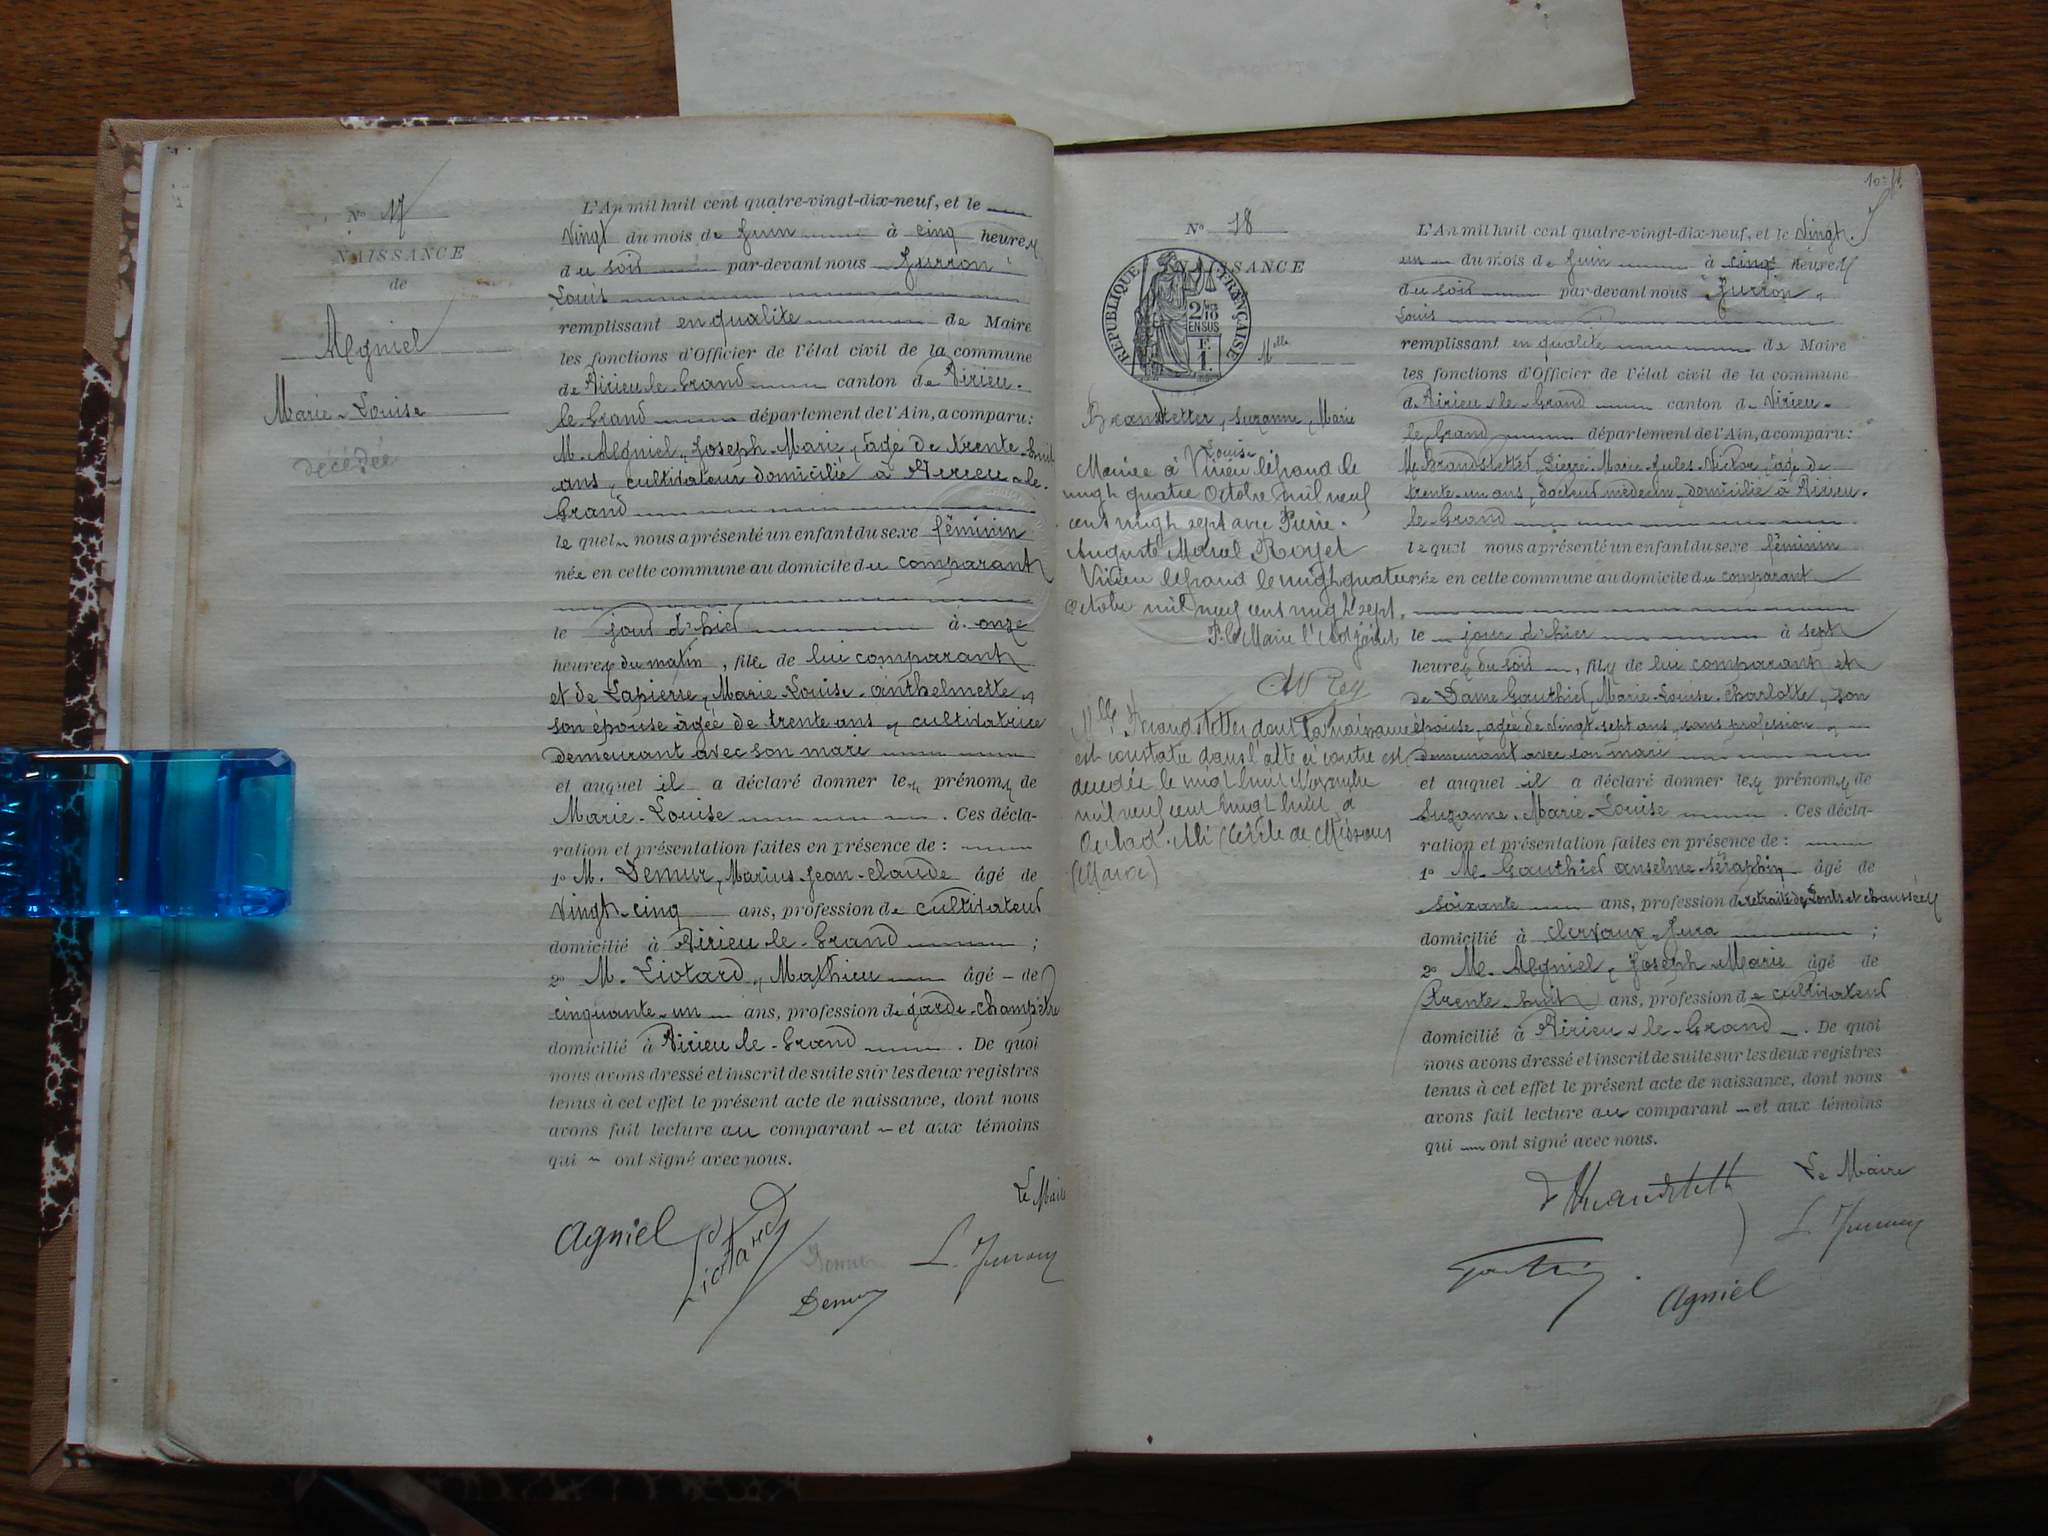 Nº 17
NAISSANCE
de
Algniel
Marie-Louise
décédée
L'An mil huit cent quatre-vingt-dix-neuf, et le
Vingt du mois de Juin à cinq heures
du soir par-devant nous Jurron
Louis
remplissant en qualité de Maire
les fonctions d'Officier de l'état civil de la commune
de Virieu-le-Grand canton de Virieu-
le-Grand département de l'Ain, a comparu:
M. Algniel, Joseph-Marie, âgé de trente-huit
ans, cultivateur domicilié à Virieu-le-
Grand
lequel nous a présenté un enfant du sexe féminin
née en cette commune au domicile du comparant
le jour d'hier à onze
heures du matin, fille de lui comparant
et de Lapierre, Marie-Louise-Anthelmette,
son épouse âgée de trente ans, cultivatrice
demeurant avec son mari
et auquel il a déclaré donner les prénoms de
Marie-Louise. Ces décla-
ration et présentation faites en présence de:
1º M. Demur, Marius-Jean-Claude âgé de
Vingt-cinq ans, profession de cultivateur
domicilié à Virieu-le-Grand;
2º M. Liotard, Mathieu âgé de
cinquante-un ans, profession de garde-champêtre
domicilié à Virieu-le-Grand. De quoi
nous avons dressé et inscrit de suite sur les deux registres
tenus à cet effet le présent acte de naissance, dont nous
avons fait lecture au comparant et aux témoins
qui ont signé avec nous.
Le Maire
Agniel Liotard Demur L. Jurron
Demur
10
Nº 18
NAISSANCE
RÉPUBLIQUE FRANÇAISE
2/10 EN SUS
F. 1.
Mlle
Brandstetter, Suzanne, Marie
Louise
Mariée à Virieu le Grand le
vingt quatre Octobre mil neuf
cent vingt sept avec Pierre-
Auguste Marcel Royet
Virieu le Grand le vingt quatre
Octobre mil neuf cent vingt sept.
P. le Maire l'Adjoint
Rey
Mlle Brandstetter dont la naissance
est constatée dans l'acte ci contre est
décédée le vingt huit Novembre
mil neuf cent vingt huit à
Oulad Ali (Cercle de Missour
(Maroc)
L'An mil huit cent quatre-vingt-dix-neuf, et le Vingt-
un du mois de Juin à cinq heures
du soir par-devant nous Jurron,
Louis
remplissant en qualité de Maire
les fonctions d'Officier de l'état civil de la commune
de Virieu-le-Grand canton de Virieu-
le-Grand département de l'Ain, a comparu:
M. Brandstetter, Pierre-Marie-Jules-Victor, âgé de
trente-un ans, docteur médecin, domicilié à Virieu-
le-Grand
lequel nous a présenté un enfant du sexe féminin
née en cette commune au domicile du comparant
le jour d'hier à sept
heures du soir, fille de lui comparant et
de Dame Gauthier, Marie-Louise-Charlotte, son
épouse, âgée de vingt-sept ans, sans profession,
demeurant avec son mari
et auquel il a déclaré donner les prénoms de
Suzanne-Marie-Louise. Ces décla-
ration et présentation faites en présence de:
1º M. Gauthier Anselme-Séraphin âgé de
soixante ans, profession de retraité des Ponts et chaussées
domicilié à Clervaux-Jura;
2º M. Algniel, Joseph-Marie âgé de
trente-huit ans, profession de cultivateur
domicilié à Virieu-le-Grand. De quoi
nous avons dressé et inscrit de suite sur les deux registres
tenus à cet effet le présent acte de naissance, dont nous
avons fait lecture au comparant et aux témoins
qui ont signé avec nous.
Le Maire
L. Jurron
Agniel